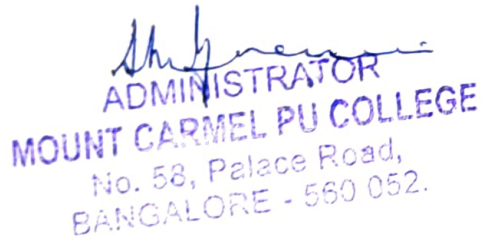 ADMINISTRATOR
MOUNT CARMEL PU COLLEGE
No. 58, Palace Road,
BANGALORE - 560 052.